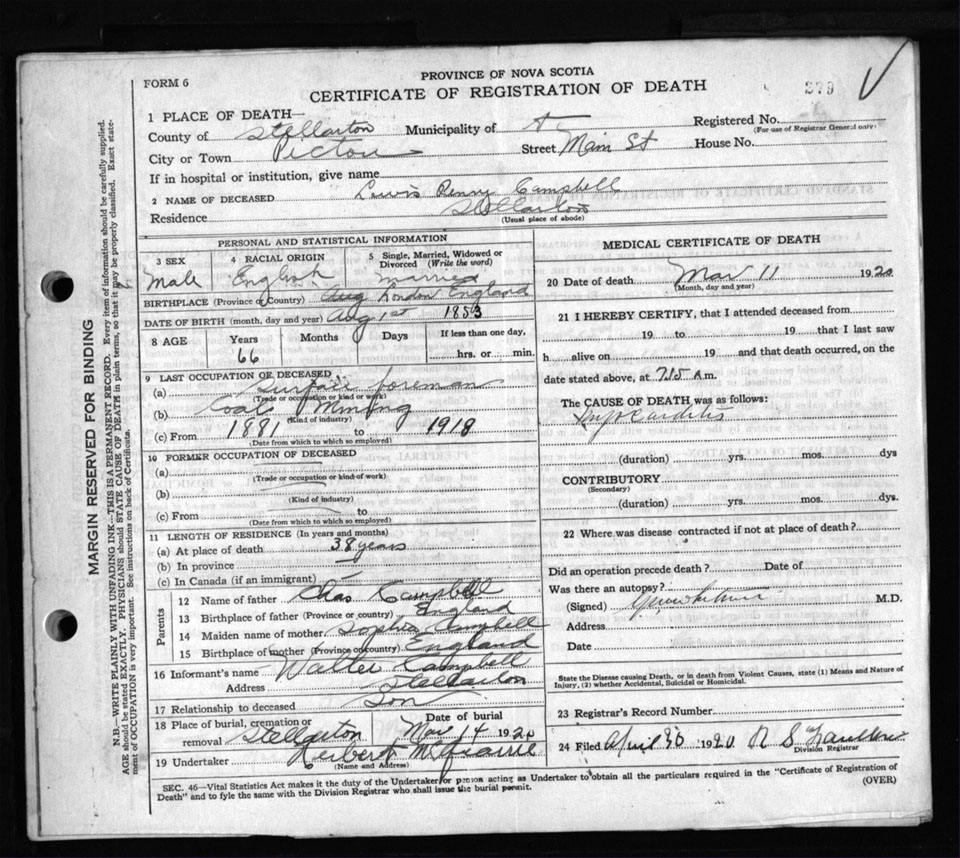 PROVINCE OF NOVA SCOTIA
FORM 6
CERTIFICATE OF REGISTRATION OF DEATH
379
1 PLACE OF DEATH—
County of Stellarton Municipality of Registered No.
(For use of Registrar General only)
City or Town Pictou Street Main St House No.
If in hospital or institution, give name
2 NAME OF DECEASED Lewis Penny Campbell
Residence Stellarton
(Usual place of abode)
PERSONAL AND STATISTICAL INFORMATION
3 SEX 4 RACIAL ORIGIN 5 Single, Married, Widowed or Divorced (Write the word)
Male English married
BIRTHPLACE (Province or Country) Aug London England
DATE OF BIRTH (month, day and year) Aug 1st 1853
8 AGE Years Months Days If less than one day,
66 hrs. or min.
9 LAST OCCUPATION OF DECEASED
(a) Surface foreman
(Trade or occupation or kind or work)
(b) Coal Mining
(Kind of industry)
(c) From 1881 to 1918
(Date from which to which so employed)
10 FORMER OCCUPATION OF DECEASED
(a)
(Trade or occupation or kind of work)
(b)
(Kind of industry)
(c) From to
(Date from which to which so employed)
11 LENGTH OF RESIDENCE (In years and months)
(a) At place of death 38 years
(b) In province
(c) In Canada (if an immigrant)
Parents
12 Name of father Chas Campbell
13 Birthplace of father (Province or country) England
14 Maiden name of mother Sophia Campbell
15 Birthplace of mother (Province or country) England
16 Informant's name Walter Campbell
Address Stellarton
17 Relationship to deceased Son
18 Place of burial, cremation or removal Stellarton Date of burial Mar 14 1920
19 Undertaker Herbert
(Name and Address)
MEDICAL CERTIFICATE OF DEATH
20 Date of death Mar 11 1920
(Month, day and year)
21 I HEREBY CERTIFY, that I attended deceased from
19 to 19 that I last saw
h alive on 19 and that death occurred, on the
date stated above, at 7.15 A m.
The CAUSE OF DEATH was as follows:
(duration) yrs. mos. dys
CONTRIBUTORY
(Secondary)
(duration) yrs. mos. dys.
22 Where was disease contracted if not at place of death?
Did an operation precede death? Date of
Was there an autopsy?
(Signed) M.D.
Address
Date
State the Disease causing Death, or in death from Violent Causes, state (1) Means and Nature of
Injury, (2) whether Accidental, Suicidal or Homicidal.
23 Registrar's Record Number
24 Filed April 30 1920 R S
Division Registrar
SEC. 46—Vital Statistics Act makes it the duty of the Undertaker or person acting as Undertaker to obtain all the particulars required in the "Certificate of Registration of
Death" and to fyle the same with the Division Registrar who shall issue the burial permit.
(OVER)
MARGIN RESERVED FOR BINDING
N.B.—WRITE PLAINLY WITH UNFADING INK—THIS IS A PERMANENT RECORD. Every item of information should be carefully supplied.
AGE should be stated EXACTLY. PHYSICIANS should STATE CAUSE OF DEATH in plain terms, so that it may be properly classified. Exact state-
ment of OCCUPATION is very important. See instructions on back of Certificate.